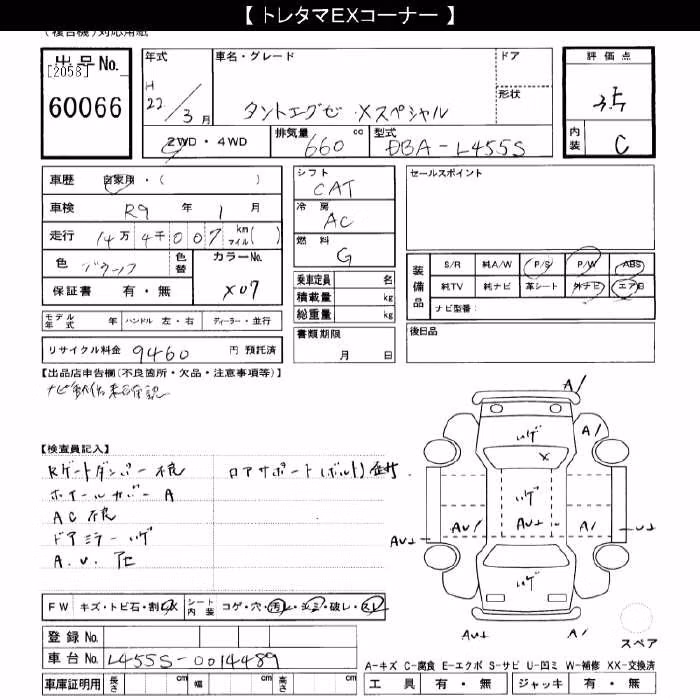 【 トレタマEXコーナー 】
(複合機)対応用紙
出品No.
[2058]
60066
年式
H
22 / 3 月
車名・グレード
タントエグゼ・Xスペシャル
ドア
形状
評価点
3.5
内装
C
2WD・4WD
排気量
660 cc
型式
DBA-L455S
車歴 自家用・( )
車検 R9 年 1 月
走行 14万4千007 km マイル( )
色
色替
カラーNo.
X07
保証書 有・無
シフト
CAT
冷房
AC
燃料
G
乗車定員 名
積載量 kg
総重量 kg
書類期限
月 日
セールスポイント
装備品
S/R 純A/W P/S P/W ABS
純TV 純ナビ 革シート 外ナビ エアB
ナビ型番:
後日品
モデル年式 年 ハンドル 左・右 ディーラー・並行
リサイクル料金 9460 円 預託済
【出品店申告欄(不良箇所・欠品・注意事項等)】
【検査員記入】
Rゲートダンパー不良
ロアサポート(ボルト)
ホイールカバー A
AC不良
ドアミラー
A.U.
A/
A/
X
AU+
AU/
A/
AU+
U+
AU+
A/
スペア
FW キズ・トビ石・割・X
シート内装 コゲ・穴・汚レ・シミ・破レ・スレ
登録No.
車台No. L455S-0014489
車庫証明用 長さ cm 幅 cm 高さ cm
A-キズ C-腐食 E-エクボ S-サビ U-凹ミ W-補修 XX-交換済
工具 有・無 ジャッキ 有・無